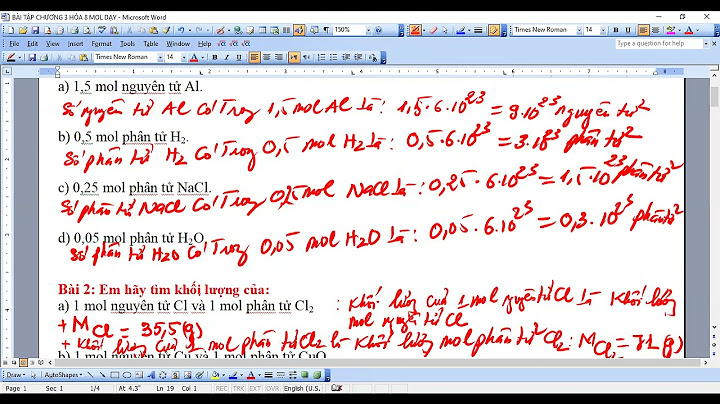 BÀI TẬP CHƯƠNG 3 HÓA 8 MOL DẠY - Microsoft Word
File Edit View Insert Format Tools Table Window Help
Type a question for help
150%
Times New Roman 14
Times New Roman 14
a) 1,5 mol nguyên tử Al.
Số nguyên tử Al có trong 1,5 mol Al là: 1,5.6.10²³ = 9.10²³ nguyên tử
b) 0,5 mol phân tử H₂.
Số phân tử H₂ có trong 0,5 mol H₂ là: 0,5.6.10²³ = 3.10²³ phân tử
c) 0,25 mol phân tử NaCl.
Số phân tử NaCl có trong 0,25 mol NaCl là: 0,25.6.10²³ = 1,5.10²³ phân tử
d) 0,05 mol phân tử H₂O
Số phân tử H₂O có trong 0,05 mol H₂O là: 0,05.6.10²³ = 0,3.10²³ phân tử
Bài 2: Em hãy tìm khối lượng của:
a) 1 mol nguyên tử Cl và 1 mol phân tử Cl₂ : Khối lượng của 1 mol nguyên tử Cl là khối lượng
mol nguyên tử Cl
+ M Cl = 35,5 (g)
+ Khối lượng của 1 mol phân tử Cl₂ là khối lượng mol phân tử Cl₂: M Cl₂ = 71 (g)
b) 1 mol nguyên tử Cu và 1 mol phân tử CuO
Draw AutoShapes
Page 1 Sec 1 1/4 At 4.3" Ln 19 Col 1 REC TRK EXT OVR English (U.S.